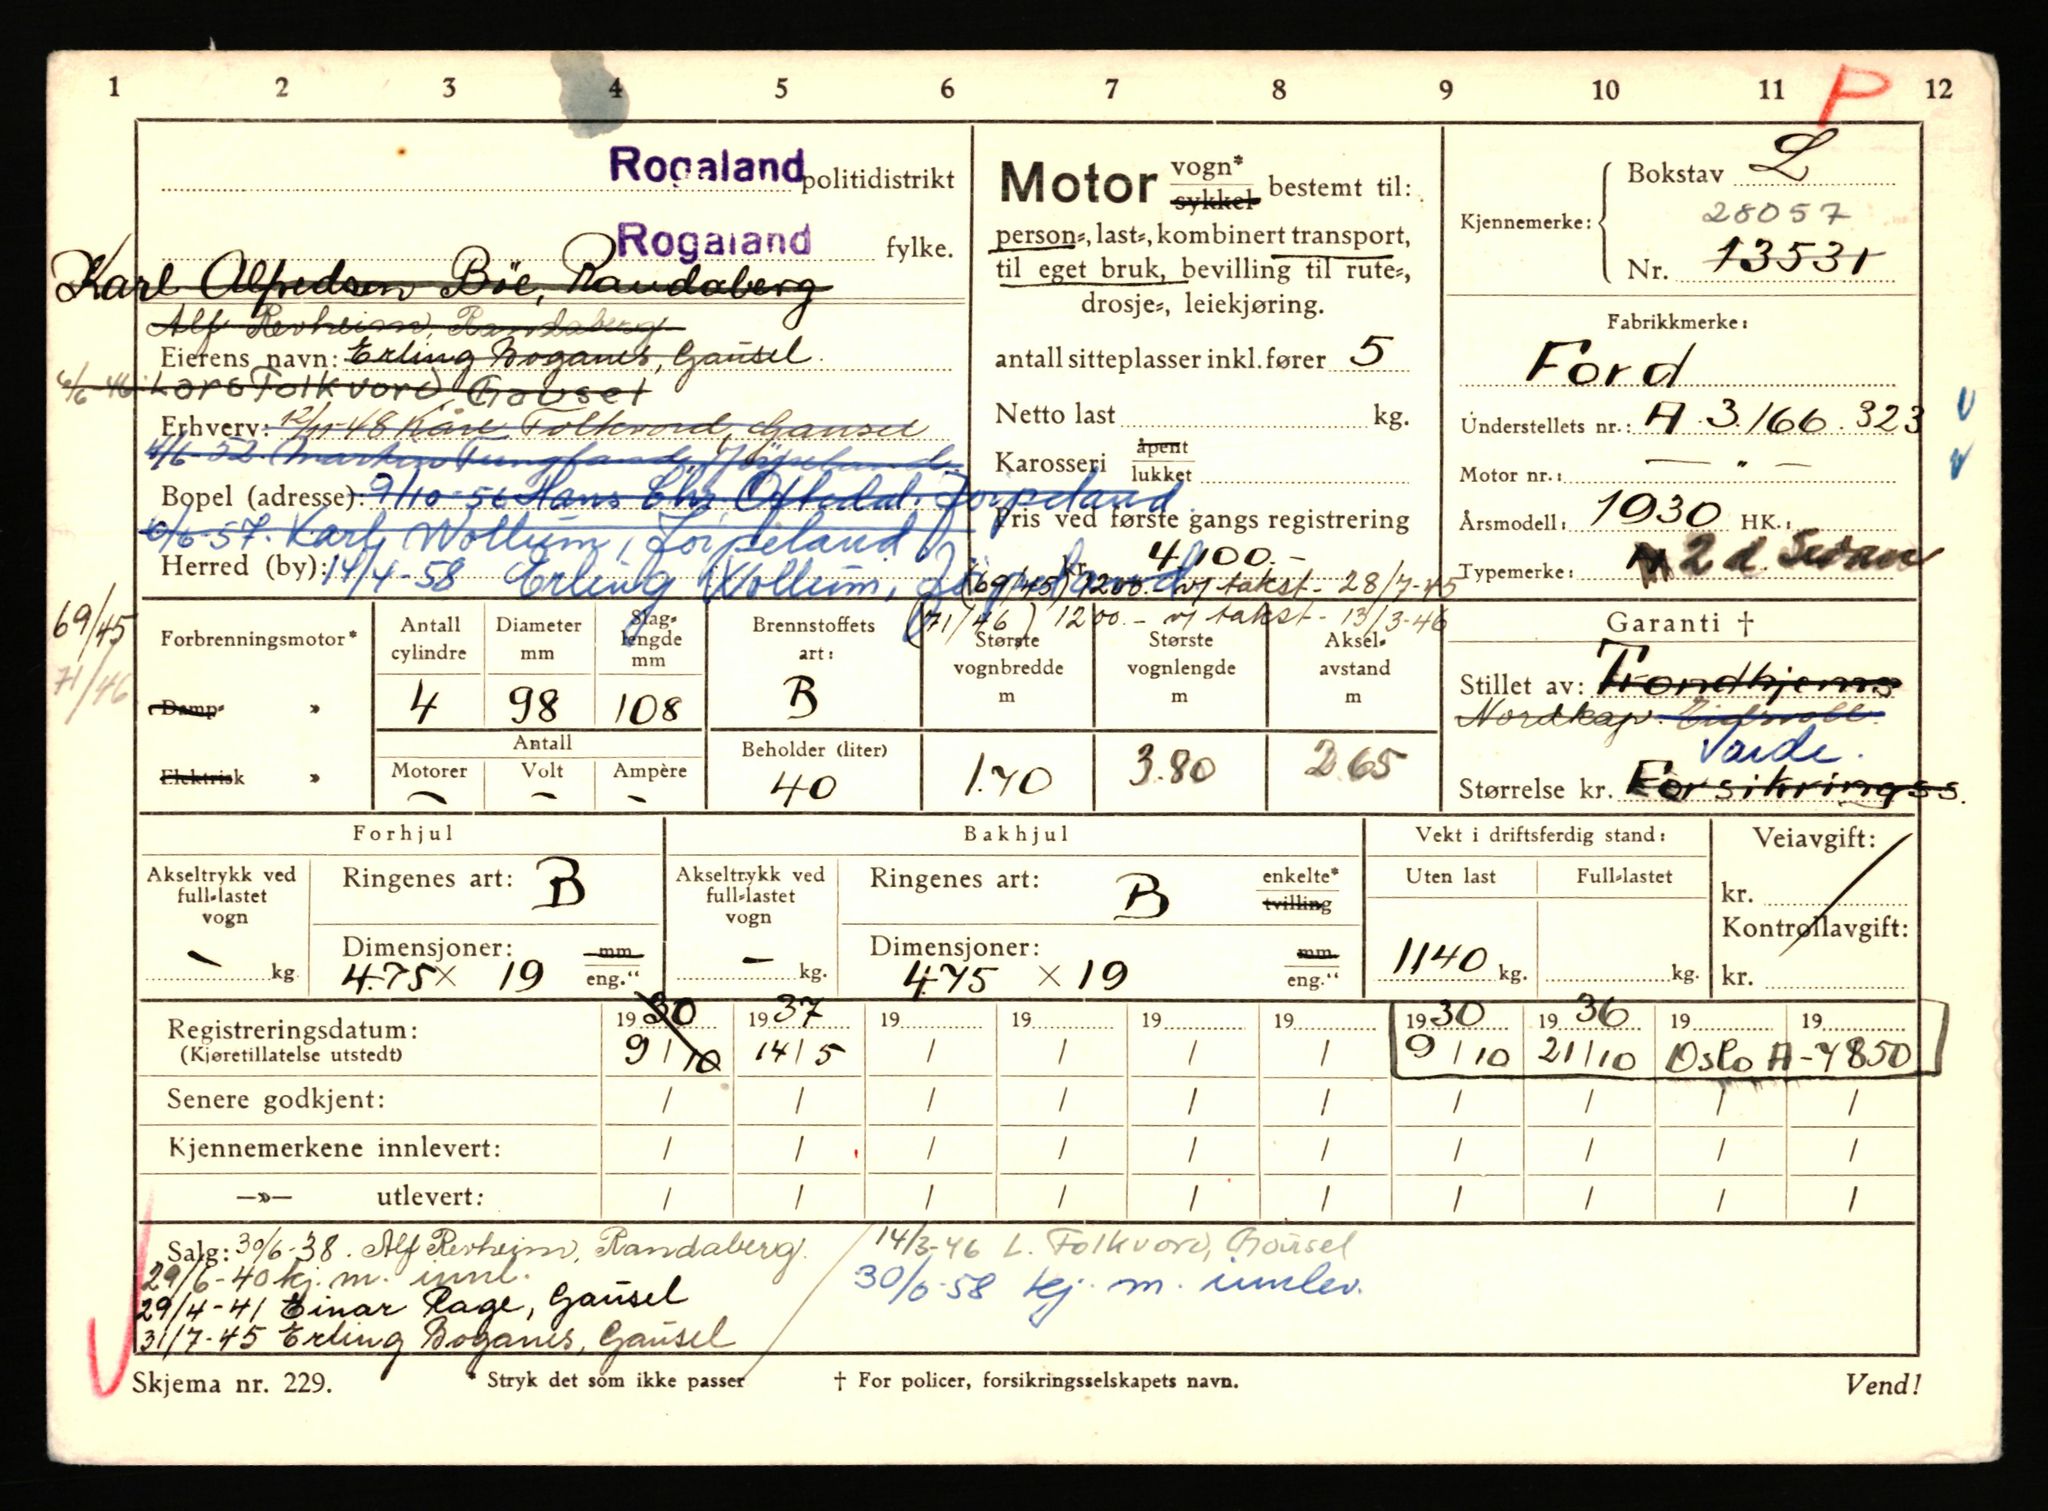 1 2 3 4 5 6 7 8 9 10 11 12
P
Rogaland politidistrikt
Rogaland fylke.
Karl Alfredsen Böe, Randaberg
Alf Revheim, Randaberg
Eierens navn: Erling Boganes, Gausel
6/6-46 Lars Folkvord Gausel
Erhverv: 12/11-48 Kåre Folkvord, Gausel
4/6-52 Jörpeland
Bopel (adresse): 9/10-56 Hans Chr. Oftedal. Jørpeland
6/6-57. Karl Wollum, Jörpeland
Herred (by): 14/4-58 Erling Wollum, Jörpeland
Motor vogn* sykkel bestemt til:
person-, last-, kombinert transport,
til eget bruk, bevilling til rute-,
drosje-, leiekjøring.
antall sitteplasser inkl. fører 5
Netto last kg.
Karosseri åpent lukket
Pris ved første gangs registrering
kr. 4100.-
(69/45) 1200.- v/ takst - 28/7-45
(71/46) 1200.- v/ takst - 13/3-46
Kjennemerke: Bokstav L
28057
Nr. 13531
Fabrikkmerke:
Ford
Understellets nr.: A.3.166.323
Motor nr.: — " —
Årsmodell: 1930 HK.:
Typemerke: 2 d. Sedan
69/45
71/46
Forbrenningsmotor*
Damp- »
Elektrisk »
Antall cylindre 4
Diameter mm 98
Slag-lengde mm 108
Antall
Motorer – Volt – Ampère –
Brennstoffets art: B
Beholder (liter) 40
Største vognbredde m 1.70
Største vognlengde m 3.80
Aksel-avstand m 265
Garanti †
Stillet av: Trondhjems
Nordkap. Eidsvoll.
Varde.
Størrelse kr. Forsikringss.
Forhjul
Akseltrykk ved full-lastet vogn – kg.
Ringenes art: B
Dimensjoner: mm
4.75 × 19 eng."
Bakhjul
Akseltrykk ved full-lastet vogn – kg.
Ringenes art: B enkelte* tvilling
Dimensjoner: mm
475 × 19 eng."
Vekt i driftsferdig stand:
Uten last Full-lastet
1140 kg. kg.
Veiavgift:
kr.
Kontrollavgift:
kr.
Registreringsdatum: 1930 1937 19 19 19 19 1930 1936 19 19
(Kjøretillatelse utstedt) 9/10 14/5 / / / / 9/10 21/10 Oslo A-7850
Senere godkjent: / / / / / / / / / /
Kjennemerkene innlevert: / / / / / / / / / /
—»— utlevert: / / / / / / / / / /
Salg: 30/6-38. Alf Revheim, Randaberg. 14/3-46 L. Folkvord, Gausel
29/6-40 kj. m. innl. 30/6-58 kj. m. innlev.
29/4-41 Einar Rage, Gausel
31/7-45 Erling Boganes, Gausel
Skjema nr. 229. * Stryk det som ikke passer † For policer, forsikringsselskapets navn. Vend!